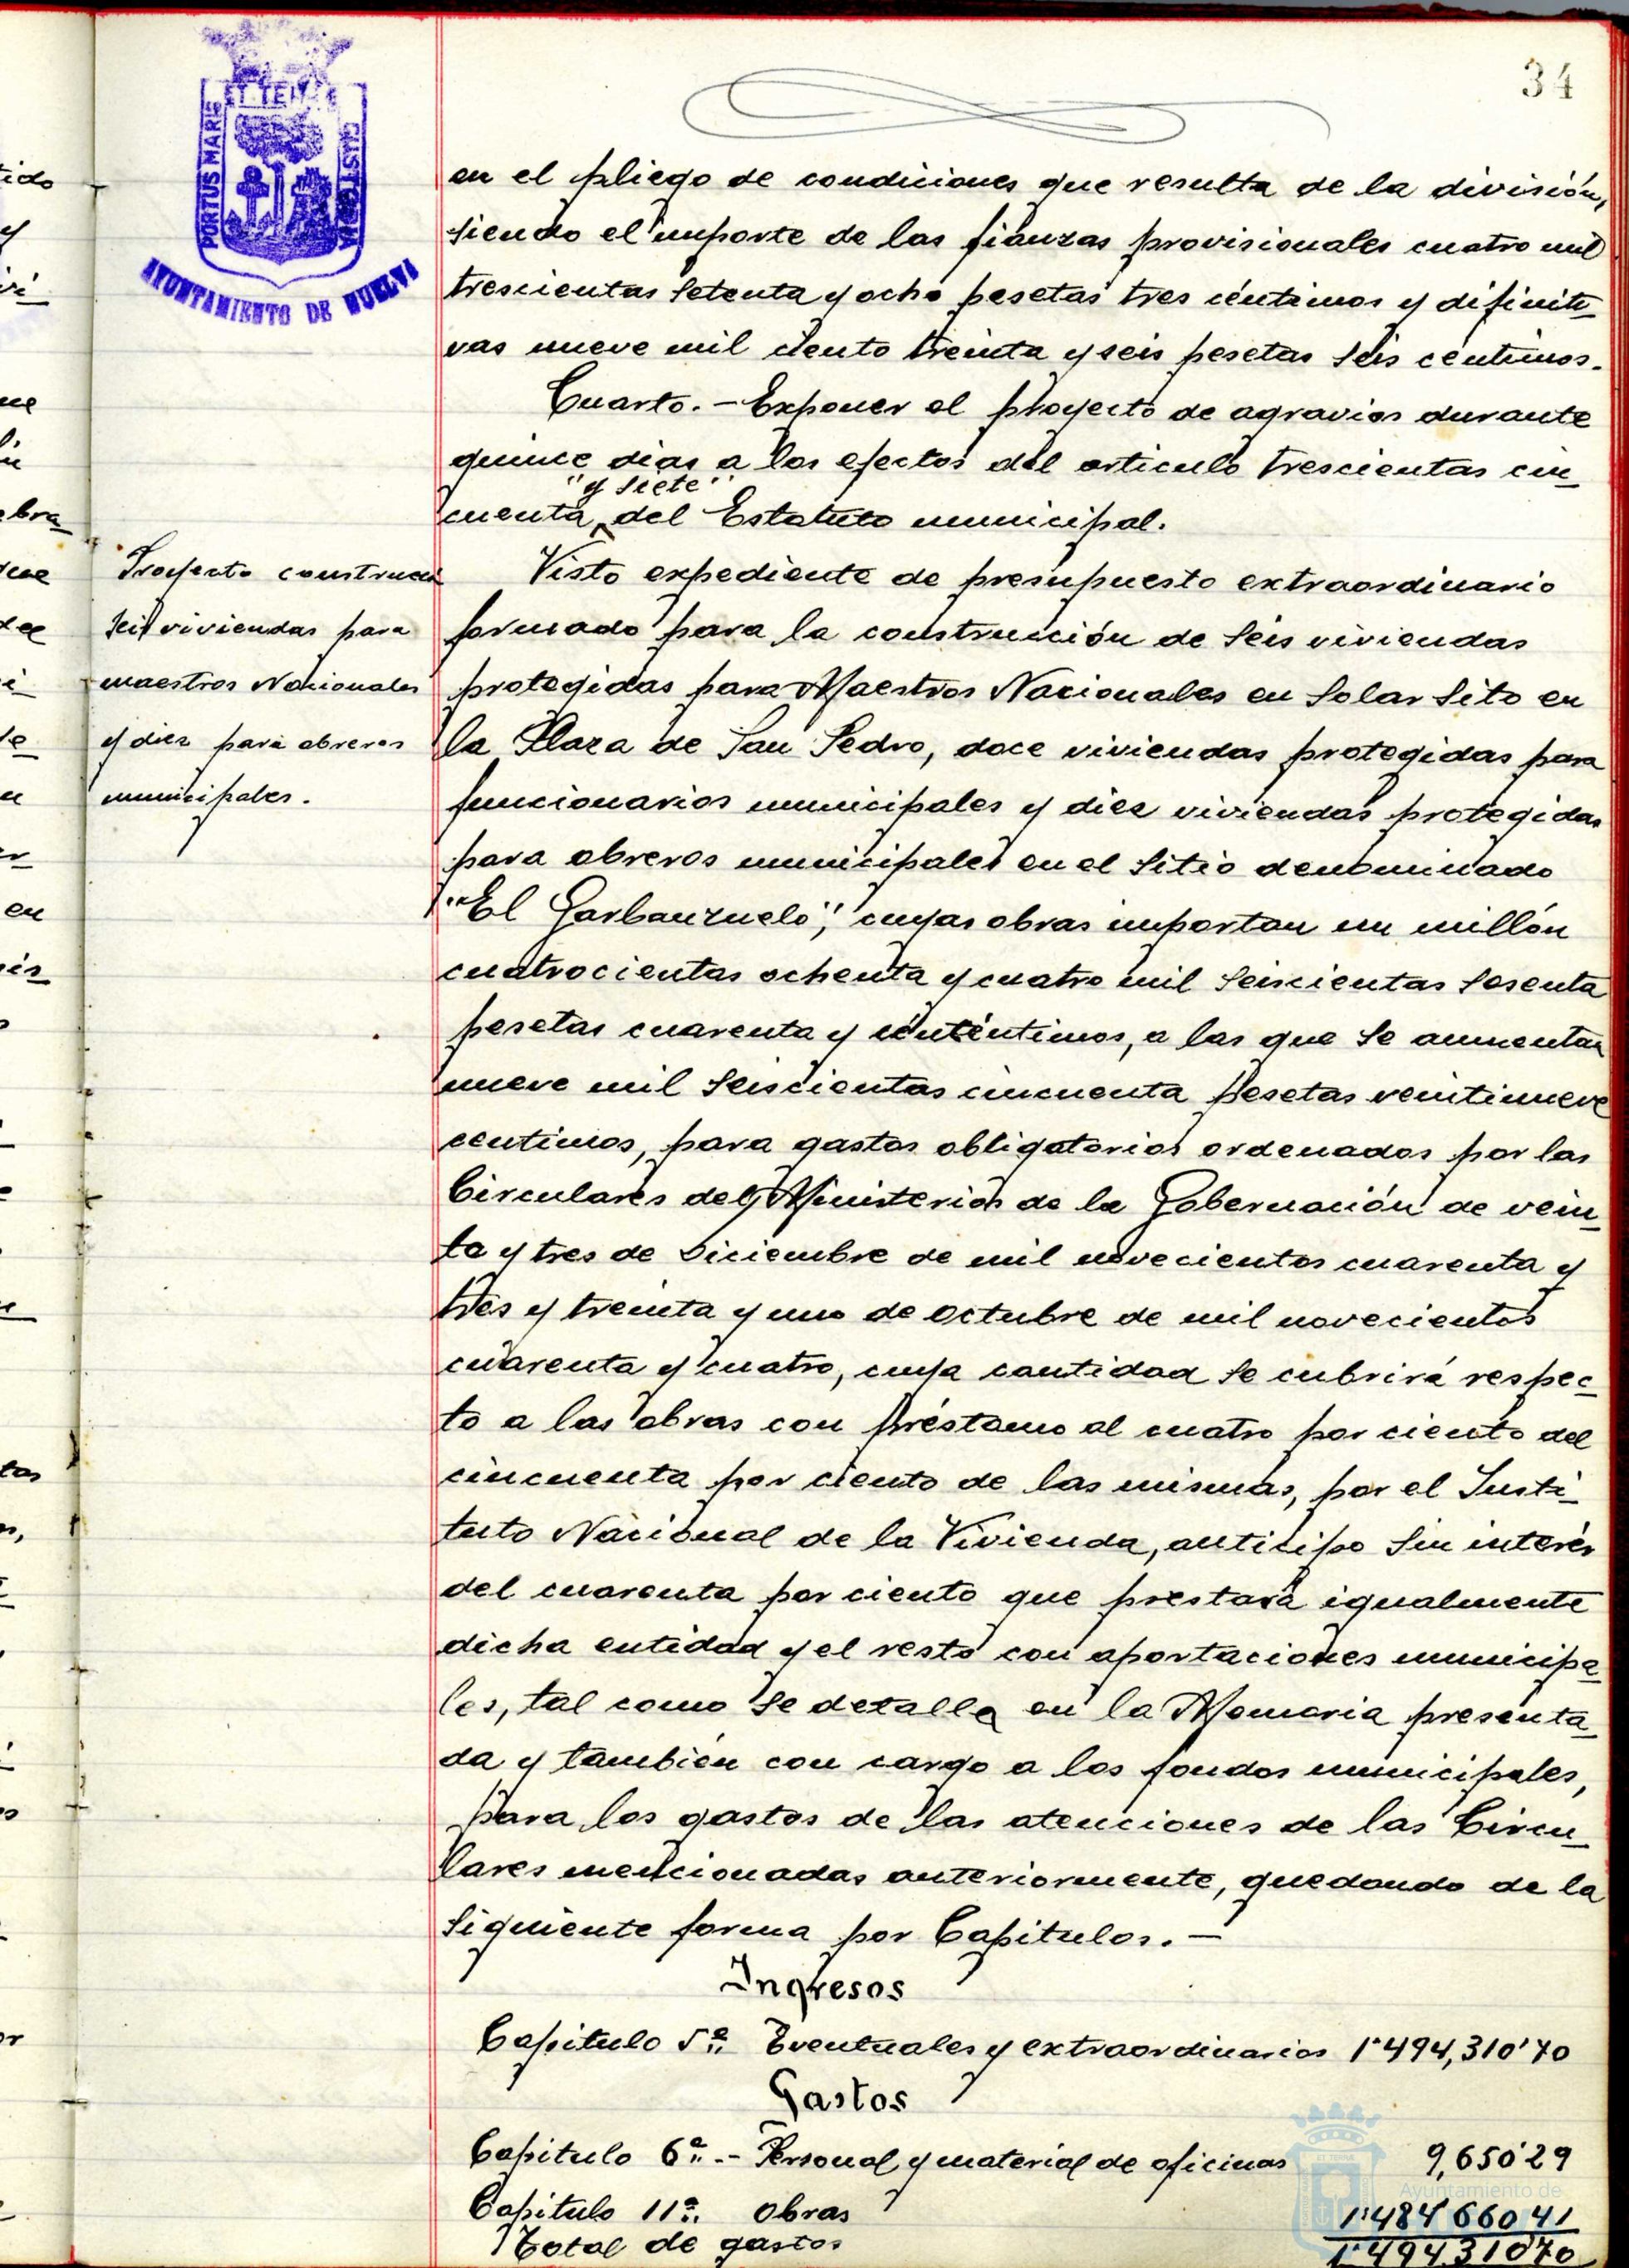 34
PORTUS MARIS
ET TERRE
CUSTODIA
AYUNTAMIENTO DE HUELVA
en el pliego de condiciones que resulta de la división,
siendo el importe de las fianzas provisionales cuatro mil
trescientas setenta y ocho pesetas tres céntimos y difiniti-
vas nueve mil ciento treinta y seis pesetas seis céntimos.
Cuarto.- Exponer el proyecto de agravios durante
quince dias a los efectos del articulo trescientas cin-
"y siete"
cuenta del Estatuto municipal.
Proyecto construcci
seis viviendas para
maestros Nacionales
y diez para obreros
municipales.
Visto expediente de presupuesto extraordinario
formado para la construcción de seis viviendas
protegidas para Maestros Nacionales en solar sito en
la Plaza de San Pedro, doce viviendas protegidas para
funcionarios municipales y diez viviendas protegidas
para obreros municipales en el sitio denominado
"El Garbanzuelo", cuyas obras importan un millón
cuatrocientas ochenta y cuatro mil seiscientas sesenta
pesetas cuarenta y céntimos, a las que se aumentan
nueve mil seiscientas cincuenta pesetas veintinueve
centimos, para gastos obligatorios ordenados por las
Circulares del Ministerio de la Gobernación de vein-
ta y tres de Diciembre de mil novecientos cuarenta y
tres y treinta y uno de Octubre de mil novecientos
cuarenta y cuatro, cuya cantidad se cubrirá respec-
to a las obras con préstamo al cuatro por ciento del
cincuenta por ciento de las mismas, por el Insti-
tuto Nacional de la Vivienda, anticipo sin interés
del cuarenta por ciento que prestará igualmente
dicha entidad y el resto con aportaciones municipa-
les, tal como se detalla en la Memoria presenta-
da y también con cargo a los fondos municipales,
para los gastos de las atenciones de las Circu-
lares mencionadas anteriormente, quedando de la
siguiente forma por Capitulos.-
Ingresos
Capitulo 5º. Eventuales y extraordinarios 1'494,310'70
Gastos
Capitulo 6º.- Personal y material de oficinas 9,650'29
Capitulo 11º. Obras 1'484 660 41
Total de gastos 1'494.310'70
Ayuntamiento de